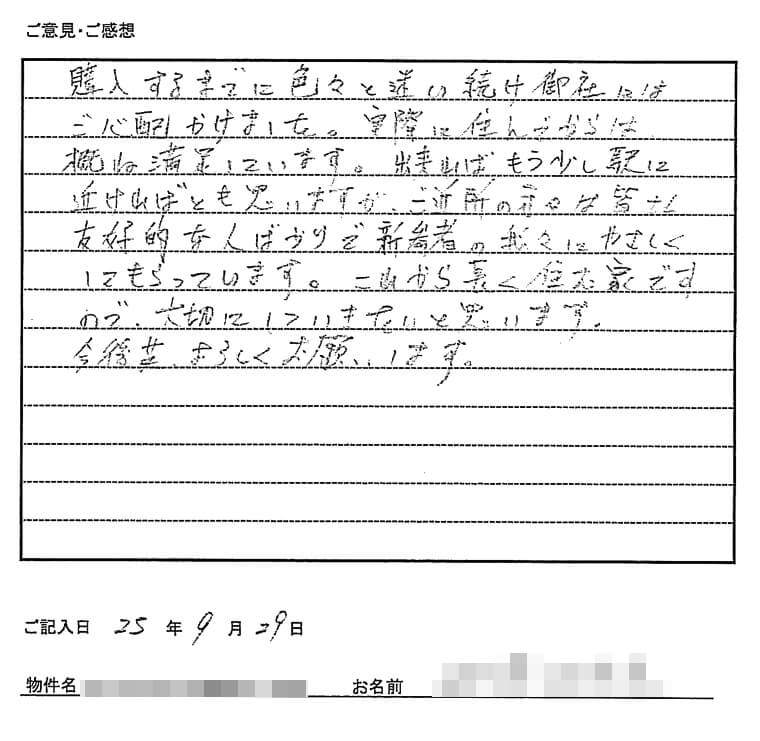 ご意見・ご感想
購入するまでに色々と迷い続け御社には
ご心配かけました。実際に住んでからは
概ね満足しています。出来ればもう少し駅に
近ければとも思いますが、ご近所の方々は皆さん
友好的な人ばかりで新参者の我々にやさしく
してもらっています。これから長く住む家です
ので、大切にしていきたいと思います。
今後共、よろしくお願いします。
ご記入日 25 年 9 月 29 日
物件名 お名前